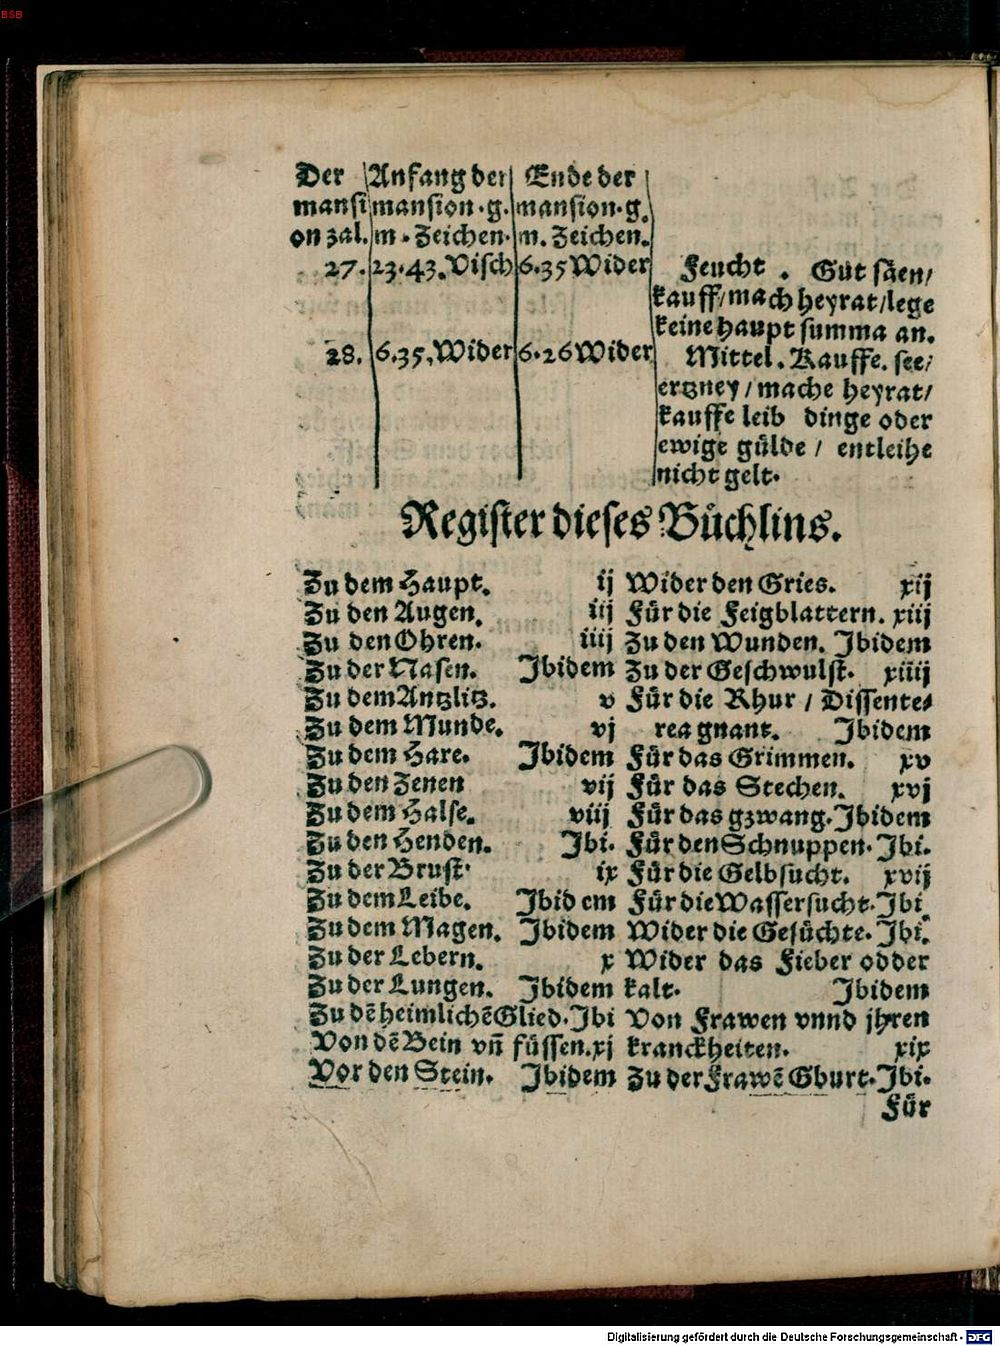 BSB
Der Anfang der Ende der
mansi mansion.g. mansion.g.
on zal. m. Zeichen. m. Zeichen.
27. 23.43. Visch 6.35 Wider Feucht. Gůt såen/
kauff/mach heyrat/lege
keine haupt summa an.
28. 6.35. Wider 6.26 Wider Mittel. Kauffe. see/
ertzney/mache heyrat/
kauffe leib dinge oder
ewige gůlde / entleihe
nicht gelt.
Register dieses Bůchlins.
Zu dem Haupt. ij
Zu den Augen. iij
Zu den Ohren. iiij
Zu der Nasen. Ibidem
Zu dem Antzlitz. v
Zu dem Munde. vj
Zu dem Hare. Ibidem
Zu den Zenen vij
Zu dem Halse. viij
Zu den Henden. Ibi.
Zu der Brust. ix
Zu dem Leibe. Ibidem
Zu dem Magen. Ibidem
Zu der Lebern. x
Zu der Lungen. Ibidem
Zu dē heimlichē Glied. Ibi
Von dē Bein vñ füssen. xj
Vor den Stein. Ibidem
Wider den Gries. xij
Fůr die Feigblattern. xiij
Zu den Wunden. Ibidem
Zu der Geschwulst. xiiij
Fůr die Rhur / Dissente-
rea gnant. Ibidem
Fůr das Grimmen. xv
Fůr das Stechen. xvj
Fůr das gzwang. Ibidem
Fůr den Schnuppen. Ibi.
Fůr die Gelbsucht. xvij
Fůr die Wassersucht. Ibi.
Wider die Gesůchte. Ibi.
Wider das Fieber odder
kalt. Ibidem
Von Frawen vnnd jhren
kranckheiten. xix
Zu der Frawē Gburt. Ibi.
Fůr
Digitalisierung gefördert durch die Deutsche Forschungsgemeinschaft - DFG